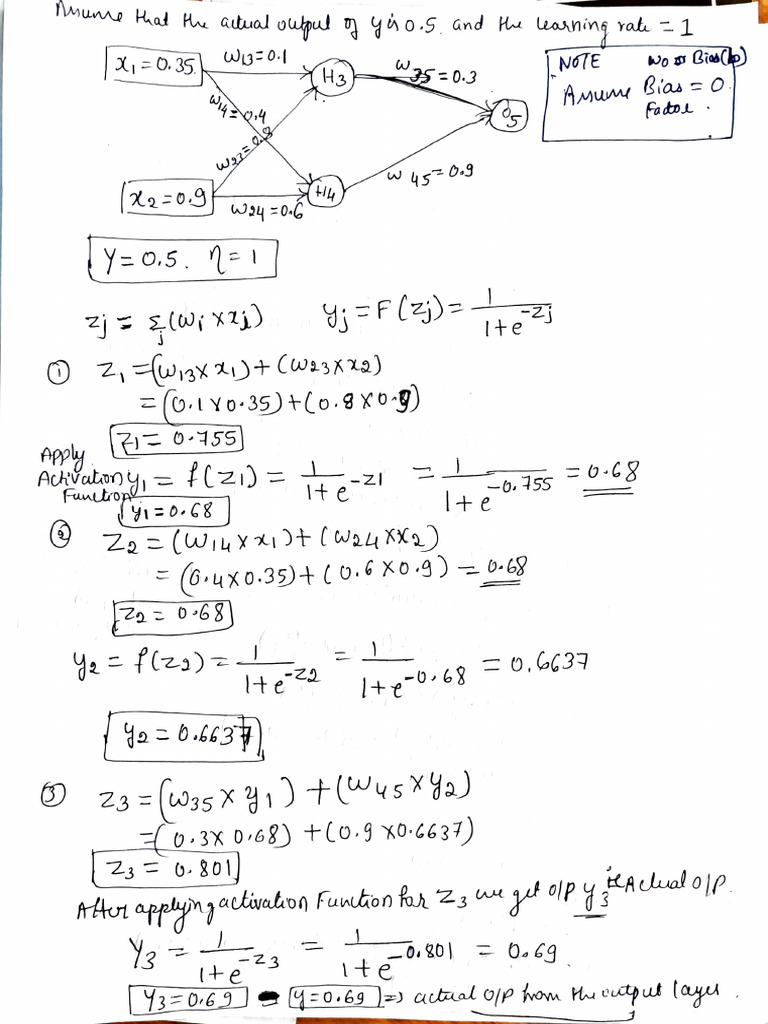 Assume that the actual output of y is 0.5 and the learning rate = 1
x1 = 0.35
w13=0.1
H3
w35=0.3
w14=0.4
w23=0.8
O5
x2=0.9
w24=0.6
H4
w45=0.9
NOTE w0 or Bias(b)
Assume Bias = 0
Factor.
Y=0.5. η=1
zj = Σj(wi × xi) yj = F(zj) = 1/(1+e^-zj)
① z1 =(w13×x1)+(w23×x2)
=(0.1×0.35)+(0.8×0.9)
z1= 0.755
Apply
Activation y1 = f(z1) = 1/(1+e^-z1) = 1/(1+e^-0.755) = 0.68
Function
y1=0.68
② z2 = (w14×x1)+(w24×x2)
= (0.4×0.35)+(0.6×0.9) = 0.68
z2 = 0.68
y2 = f(z2) = 1/(1+e^-z2) = 1/(1+e^-0.68) = 0.6637
y2 = 0.6637
③ z3 = (w35×y1) + (w45×y2)
=(0.3×0.68) +(0.9×0.6637)
z3 = 0.801
After applying activation Function for z3 we get O/P y3 ie Actual O/P.
Y3 = 1/(1+e^-z3) = 1/(1+e^-0.801) = 0.69.
Y3=0.69 y=0.69 => actual O/P from the output layer.